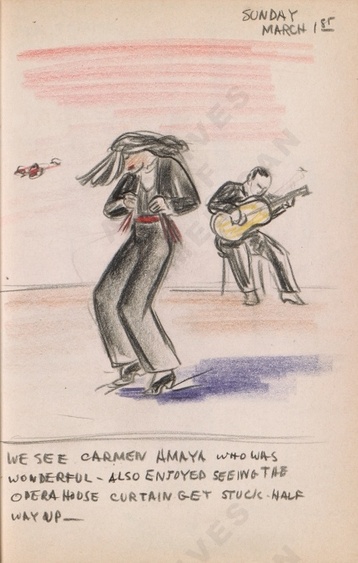 SUNDAY
MARCH 1ST
WE SEE CARMEN AMAYA WHO WAS
WONDERFUL - ALSO ENJOYED SEEING THE
OPERA HOUSE CURTAIN GET STUCK HALF
WAY UP —
ARCHIVES
OF
AMERICAN